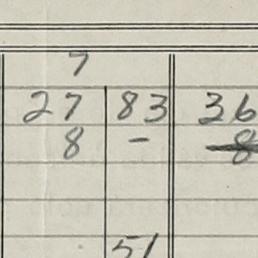 7
27 83 36
8 - 8
51